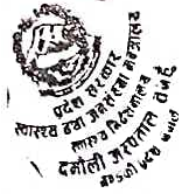 प्रदेश सरकार
स्वास्थ्य तथा जनसंख्या मन्त्रालय
स्वास्थ्य निर्देशनालय
दमौली अस्पताल तनहुँ
गण्डकी प्रदेश नेपाल